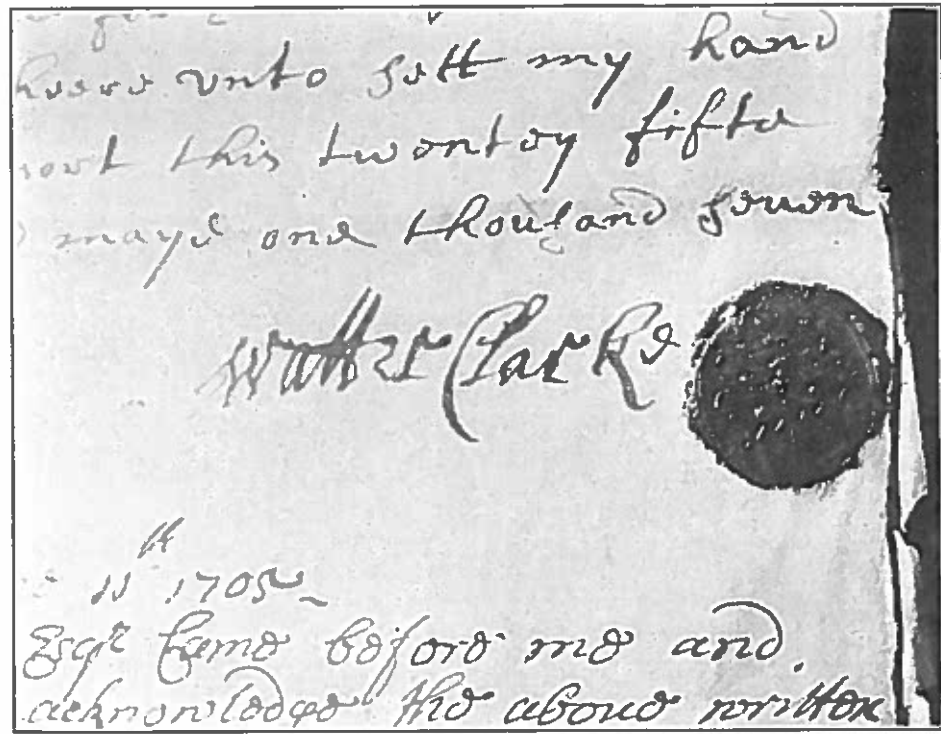 heere unto sett my hand
port this twentey fifte
maye one thousand seuen
Walter Clarke
11th 1705
Esqr Came before me and
acknowledge the aboue written